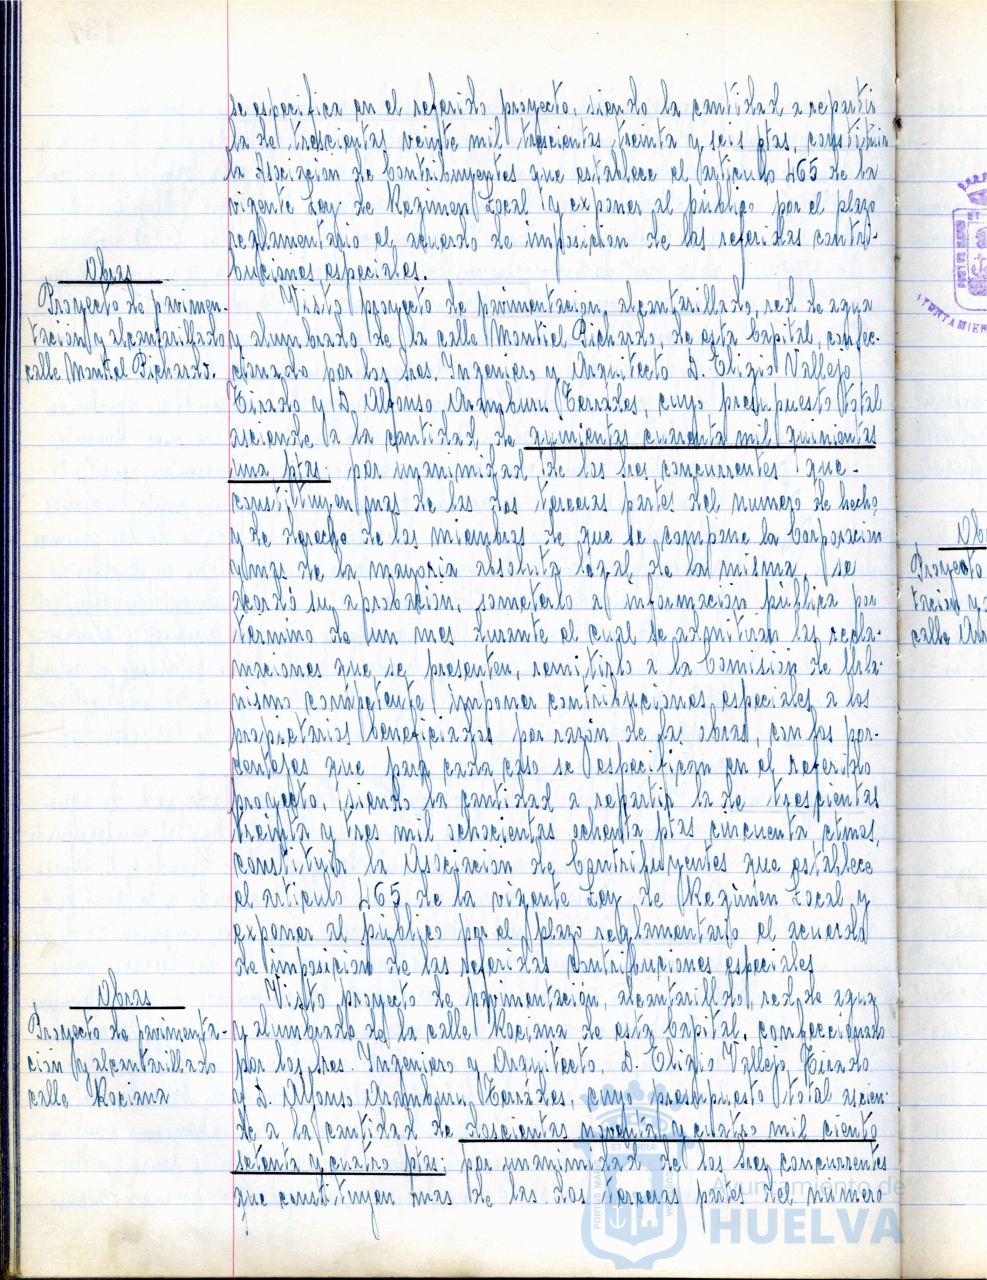 se especifica en el referido proyecto, siendo la cantidad a repartir
la de trescientas veinte mil trescientas treinta y seis ptas, constituir
la Asociación de Contribuyentes que establece el artículo 465 de la
vigente Ley de Regimen Local y exponer al público por el plazo
reglamentario el acuerdo de imposición de las referidas contri-
buciones especiales.
Obras
Proyecto de pavimen-
tación y alcantarillado
calle Montiel Pichardo.
Visto proyecto de pavimentación, alcantarillado, red de agua
y alumbrado de la calle Montiel Pichardo, de esta Capital, confec-
cionado por los Sres. Ingeniero y Arquitecto D. Eligio Vallejo
Tirado y D. Alfonso Aramburu Terrádes, cuyo presupuesto total
asciende a la cantidad de quinientas cuarenta mil quinientas
una ptas: por unanimidad de los Sres concurrentes que
constituyen mas de las dos terceras partes del numero de hecho
y de derecho de los miembros de que se compone la Corporación
y mas de la mayoría absoluta legal de la misma se
acordó su aprobación, someterlo a información pública por
termino de un mes durante el cual se admitiran las recla-
maciones que se presenten, remitirlo a la Comisión de Urba-
nismo competente imponer contribuciones especiales a los
propietarios beneficiados por razón de las obras, con los por-
centajes que para cada caso se especifican en el referido
proyecto, siendo la cantidad a repartir la de trescientas
treinta y tres mil ochocientas ochenta ptas cincuenta ctmos,
constituir la Asociacion de Contribuyentes que establece
el artículo 465 de la vigente Ley de Regimen Local y
exponer al público por el plazo reglamentario el acuerdo
de imposicion de las referidas contribuciones especiales
Obras
Proyecto de pavimenta-
ción y alcantarillado
calle Rociana
Visto proyecto de pavimentación, alcantarillado, red de agua
y alumbrado de la calle Rociana de esta Capital, confeccionado
por los Sres. Ingeniero y Arquitecto, D. Eligio Vallejo Tirado
y D. Alfonso Aramburu Terrádes, cuyo presupuesto total ascien-
de a la cantidad de doscientas noventa y cuatro mil ciento
setenta y cuatro ptas: por unanimidad de los Sres concurrentes
que constituyen mas de las dos terceras partes del numero
Ayuntamiento de
HUELVA
Proyecto